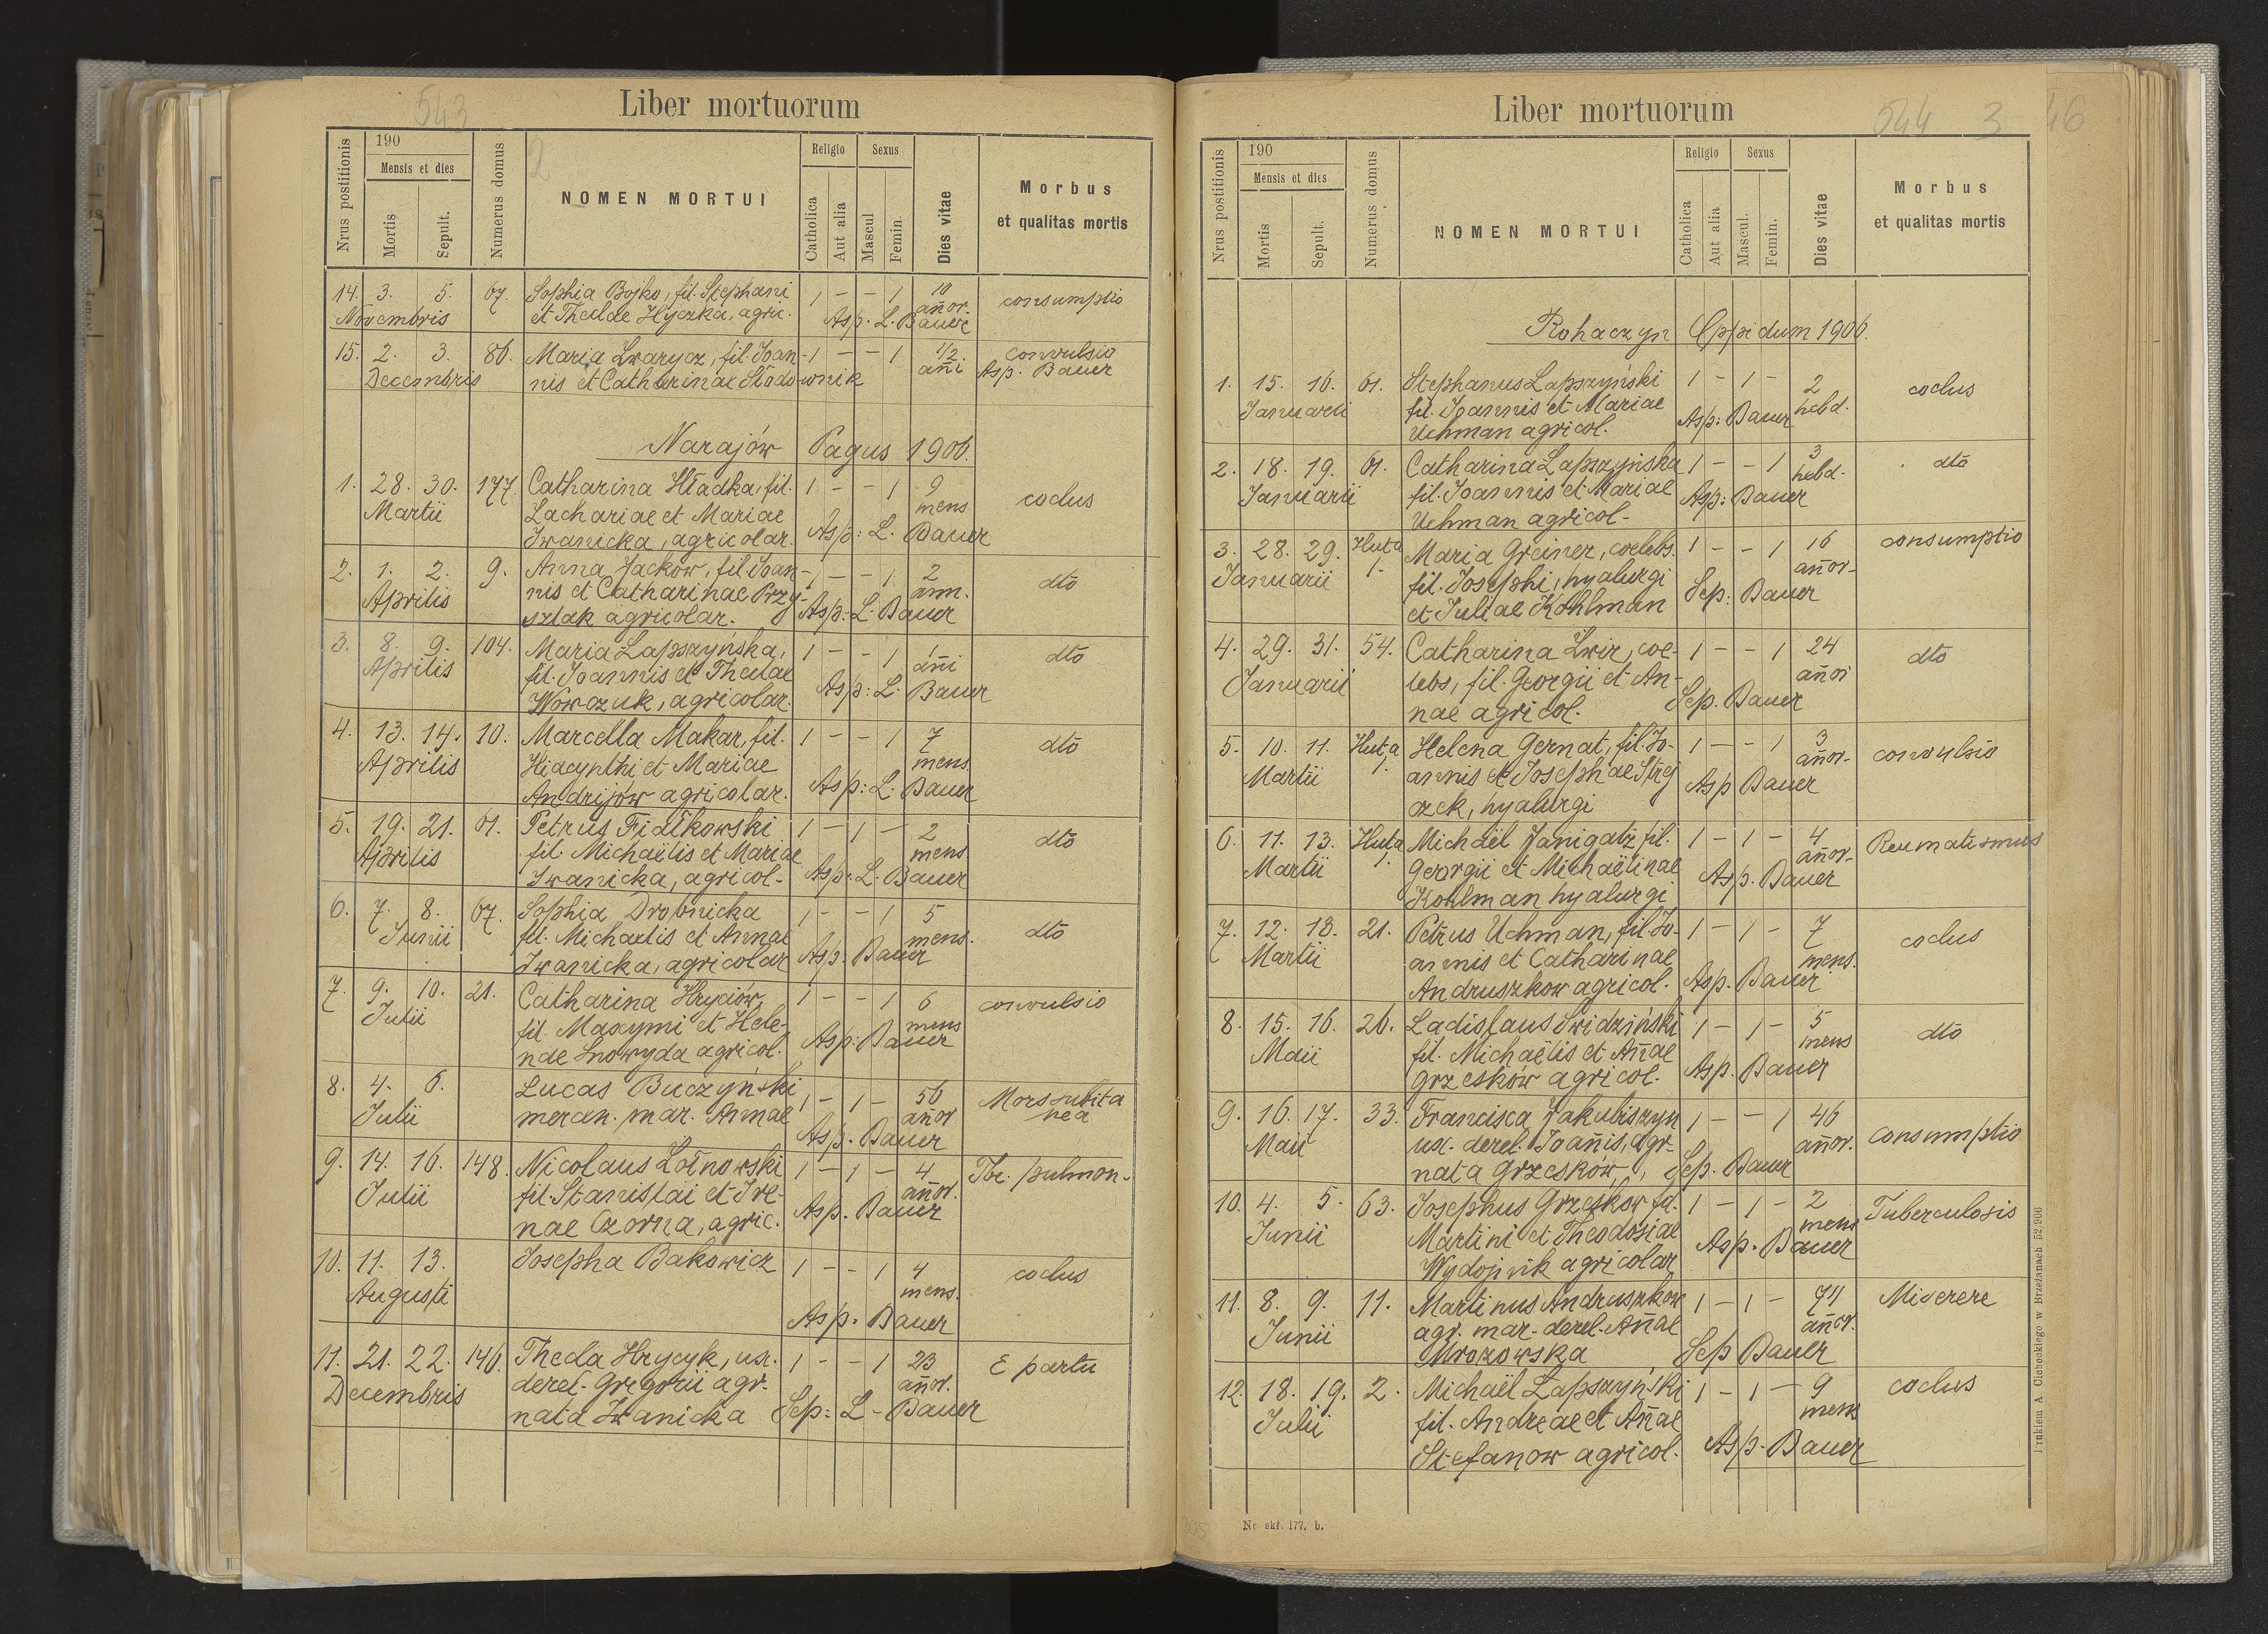 543
Liber mortuorum
Nrus postitionis
190
Mensis et dies
Mortis
Sepult.
Numerus domus
2
NOMEN MORTUI
Religio
Catholica
Aut alia
Sexus
Mascul
Femin.
Dies vitae
Morbus
et qualitas mortis
14. 3. 5. 67. Sophia Bojko, fil. Stephani 1 - - 1 10 consumptio
Novembris et Theclae Hyczka, agric. Asp. L. Bauer añor.
15. 2. 3. 86. Maria Lwarycz, fil. Joan- 1 - - 1 1/2 convulsio
Decembris nis et Catharinae Stodownik añi Asp. Bauer
Narajów Pagus 1906.
1. 28. 30. 177. Catharina Hładka, fil. 1 - - 1 9 coclus
Martii Zachariae et Mariae mens
Iwanicka, agricolar. Asp: L. Bauer
2. 1. 2. 9. Anna Jackow, fil. Joan- 1 - - 1 2 dto
Aprilis nis et Catharinae Przy- ann.
szlak agricolar. Asp: L. Bauer
3. 8. 9. 104. Maria Łapszyńska, 1 - - 1 1 dto
Aprilis fil. Joannis et Theclae añi
Wowczuk, agricolar. Asp: L. Bauer
4. 13. 14. 10. Marcella Makar, fil. 1 - - 1 7 dto
Aprilis Hiacynthi et Mariae mens
Andrijów agricolar. Asp: L. Bauer
5. 19. 21. 61. Petrus Fidłkowski 1 - 1 - 2 dto
Aprilis fil. Michaëlis et Mariae mens
Iwanicka, agricol. Asp: L. Bauer
6. 7. 8. 67. Sophia Drobnicka 1 - - 1 5 dto
Junii fil. Michaelis et Annae mens.
Iwanicka, agricolar Asp. Bauer
7. 9. 10. 21. Catharina Hryciów, 1 - - 1 6 convulsio
Julii fil. Maxymi et Hele- mens
nae Snowyda agricol. Asp: Bauer
8. 4. 6. Lucas Buczyński 1 - 1 - 56 Mors subita
Julii mercan. mar. Annae añor nea
Asp. Bauer
9. 14. 16. 148. Nicolaus Łotnowski 1 - 1 - 4 Tbc. pulmon.
Julii fil. Stanislai et Ire- añor.
nae Czorna, agric. Asp. Bauer
10. 11. 13. Josepha Bakowicz 1 - - 1 4 coclus
Augusti mens.
Asp. Bauer
11. 21. 22. 146. Thecla Hrycyk, ux. 1 - - 1 23 E partu
Decembris derel. Gregorii agr. añor.
nata Iwanicka Sep: L. Bauer
544 3 46
Liber mortuorum
Nrus postitionis
190
Mensis et dies
Mortis
Sepult.
Numerus domus
NOMEN MORTUI
Religio
Catholica
Aut alia
Sexus
Mascul.
Femin.
Dies vitae
Morbus
et qualitas mortis
Rohaczyn Oppidum 1906.
1. 15. 16. 61. Stephanus Łapszyński 1 - 1 - 2 coclus
Januarii fil. Joannis et Mariae hebd.
Uchman agricol. Asp: Bauer
2. 18. 19. 61. Catharina Łapszyńska 1 - - 1 3 dto
Januarii fil. Joannis et Mariae hebd.
Uchman agricol. Asp: Bauer
3. 28. 29. Huta 1. Maria Greiner, coelebs. 1 - - 1 16 consumptio
Januarii fil. Josephi, hyalurgi añor.
et Juliae Kohlman Sep: Bauer
4. 29. 31. 54. Catharina Lwir, coe- 1 - - 1 24 dto
Januarii lebs, fil. Georgii et An- añor
nae agricol. Sep. Bauer
5. 10. 11. Huta 1. Helena Gernat, fil. Jo- 1 - - 1 3 convulsio
Martii annis et Josephae Strej añor.
czek, hyalurgi Asp Bauer
6. 11. 13. Huta 1. Michaël Janigatz fil. 1 - 1 - 4 Reumatismus
Martii Georgii et Michaëlinae añor.
Kohlman hyalurgi Asp. Bauer
7. 12. 13. 21. Petrus Uchman, fil. Jo- 1 - 1 - 7 coclus
Martii annis et Catharinae mens.
Andruszkow agricol. Asp. Bauer
8. 15. 16. 26. Ladislaus Swidziński 1 - 1 - 5 dto
Maii fil. Michaëlis et Añae mens
Grzesków agricol. Asp. Bauer
9. 16. 17. 33. Francisca Jakubiszyn 1 - - 1 46 consumptio
Maii ux. derel. Joañis, agr. añor.
nata Grzesków, Sep. Bauer
10. 4. 5. 63. Josephus Grzeskow fil. 1 - 1 - 2 Tuberculosis
Junii Martini et Theodosiae mens
Wydojnik agricolar Asp. Bauer
11. 8. 9. 11. Martinus Andruszkow 1 - 1 - 71 Miserere
Junii agr. mar. derel. Añae añor.
Mrozowska Sep Bauer
12. 18. 19. 2. Michaël Łapszyński 1 - 1 - 9 coclus
Julii fil. Andreae et Añae mens
Stefanow agricol. Asp. Bauer
Nr. skł. 177. b.
Drukiem A. Cichockiego w Brzeżanach 52/906